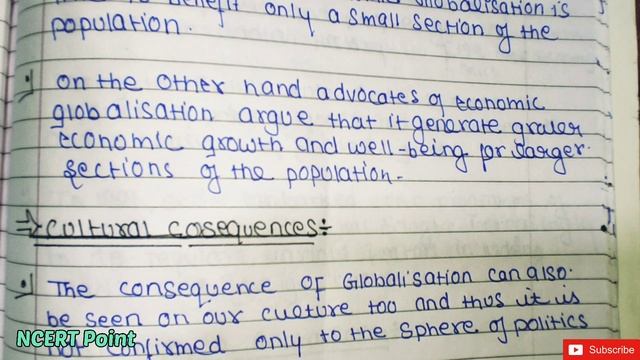 benefit only a small section of the
population.
on the other hand advocates of economic
globalisation argue that it generate grater
economic growth and well-being for larger
sections of the population-
⇒ Cultural Cosequences:-
The consequence of Globalisation can also
be seen on our cuoture too and thus it is
not confirmed only to the sphere of politics
NCERT Point
Subscribe